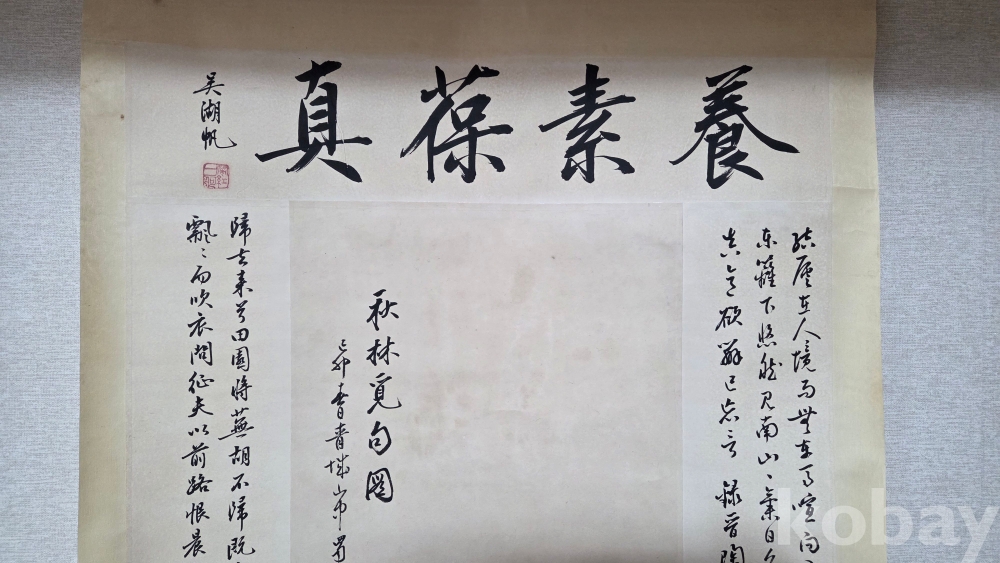 養素葆真
吳湖帆
結廬在人境而無車馬喧問
東籬下悠然見南山〻氣日夕
真意欲辯已忘言 錄晉陶
秋林覓句圖
己卯春青城山蜀
歸去來兮田園將蕪胡不歸既
飄〻而吹衣問征夫以前路恨晨
kobay